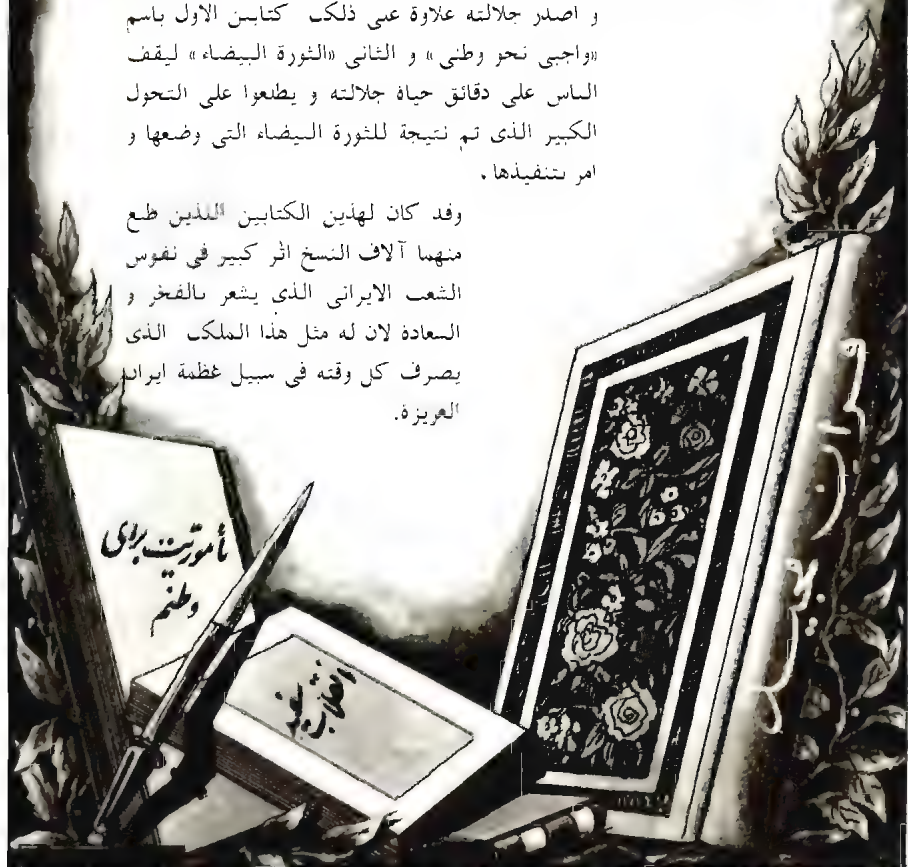 و اصدر جلالته علاوة على ذلک کتابين الاول باسم
«واجبى نحو وطنى» و الثانى «الثورة البيضاء» ليقف
الناس على دقائق حياة جلالته و يطلعوا على التحول
الكبير الذى تم نتيجة للثورة البيضاء التى وضعها و
امر بتنفيذها .
وقد كان لهذين الكتابين اللذين طبع
منهما آلاف النسخ اثر كبير فى نفوس
الشعب الايرانى الذى يشعر بالفخر و
السعادة لان له مثل هذا الملک الذى
يصرف كل وقته فى سبيل عظمة ايران
العزيزة.
مأموریت برای
وطنم
انقلاب سفید
قرآن مجید